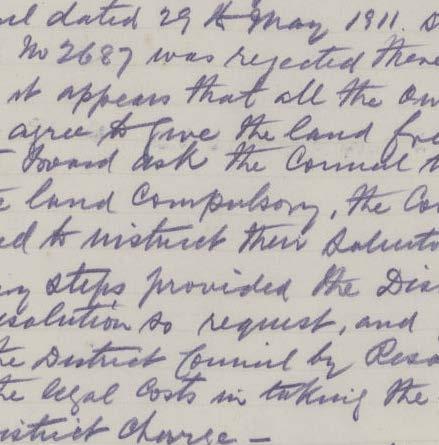 dated 29th May 1911.
No 2687 was rejected there
it appears that all the Ow
agree to give the land fre
Board ask the Council t
land Compulsory, the Co
ed to instruct their Solicito
steps provided the Dis
esolution so request, and
he District Council by Reso
the legal Costs in taking the
istrict Charge —